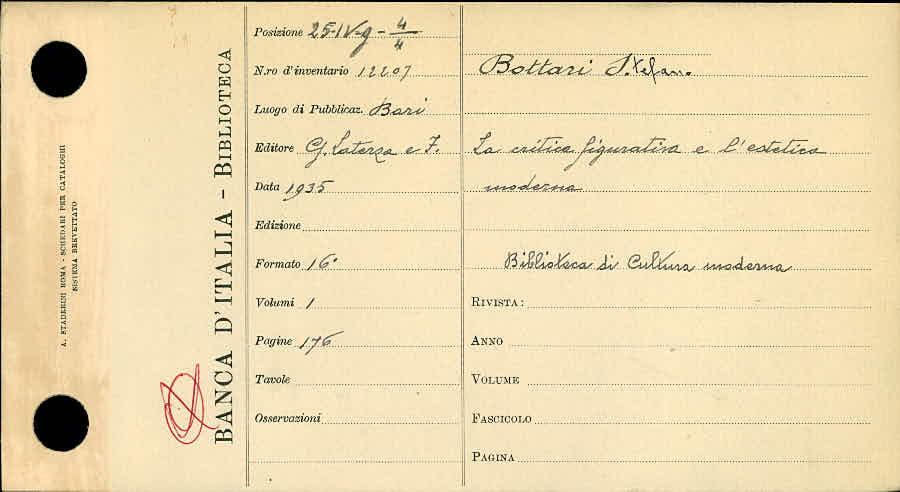 A. STADERINI ROMA - SCHEDARI PER CATALOGHI
SISTEMA BREVETTATO
BANCA D'ITALIA - BIBLIOTECA
Posizione 25-IV-g-4/4
N.ro d'inventario 12207
Luogo di Pubblicaz. Bari
Editore G. Laterza e F.
Data 1935
Edizione
Formato 16°
Volumi 1
Pagine 176
Tavole
Osservazioni
Bottari Stefano
La critica figurativa e l'estetica
moderna
Biblioteca di Cultura moderna
RIVISTA:
ANNO
VOLUME
FASCICOLO
PAGINA